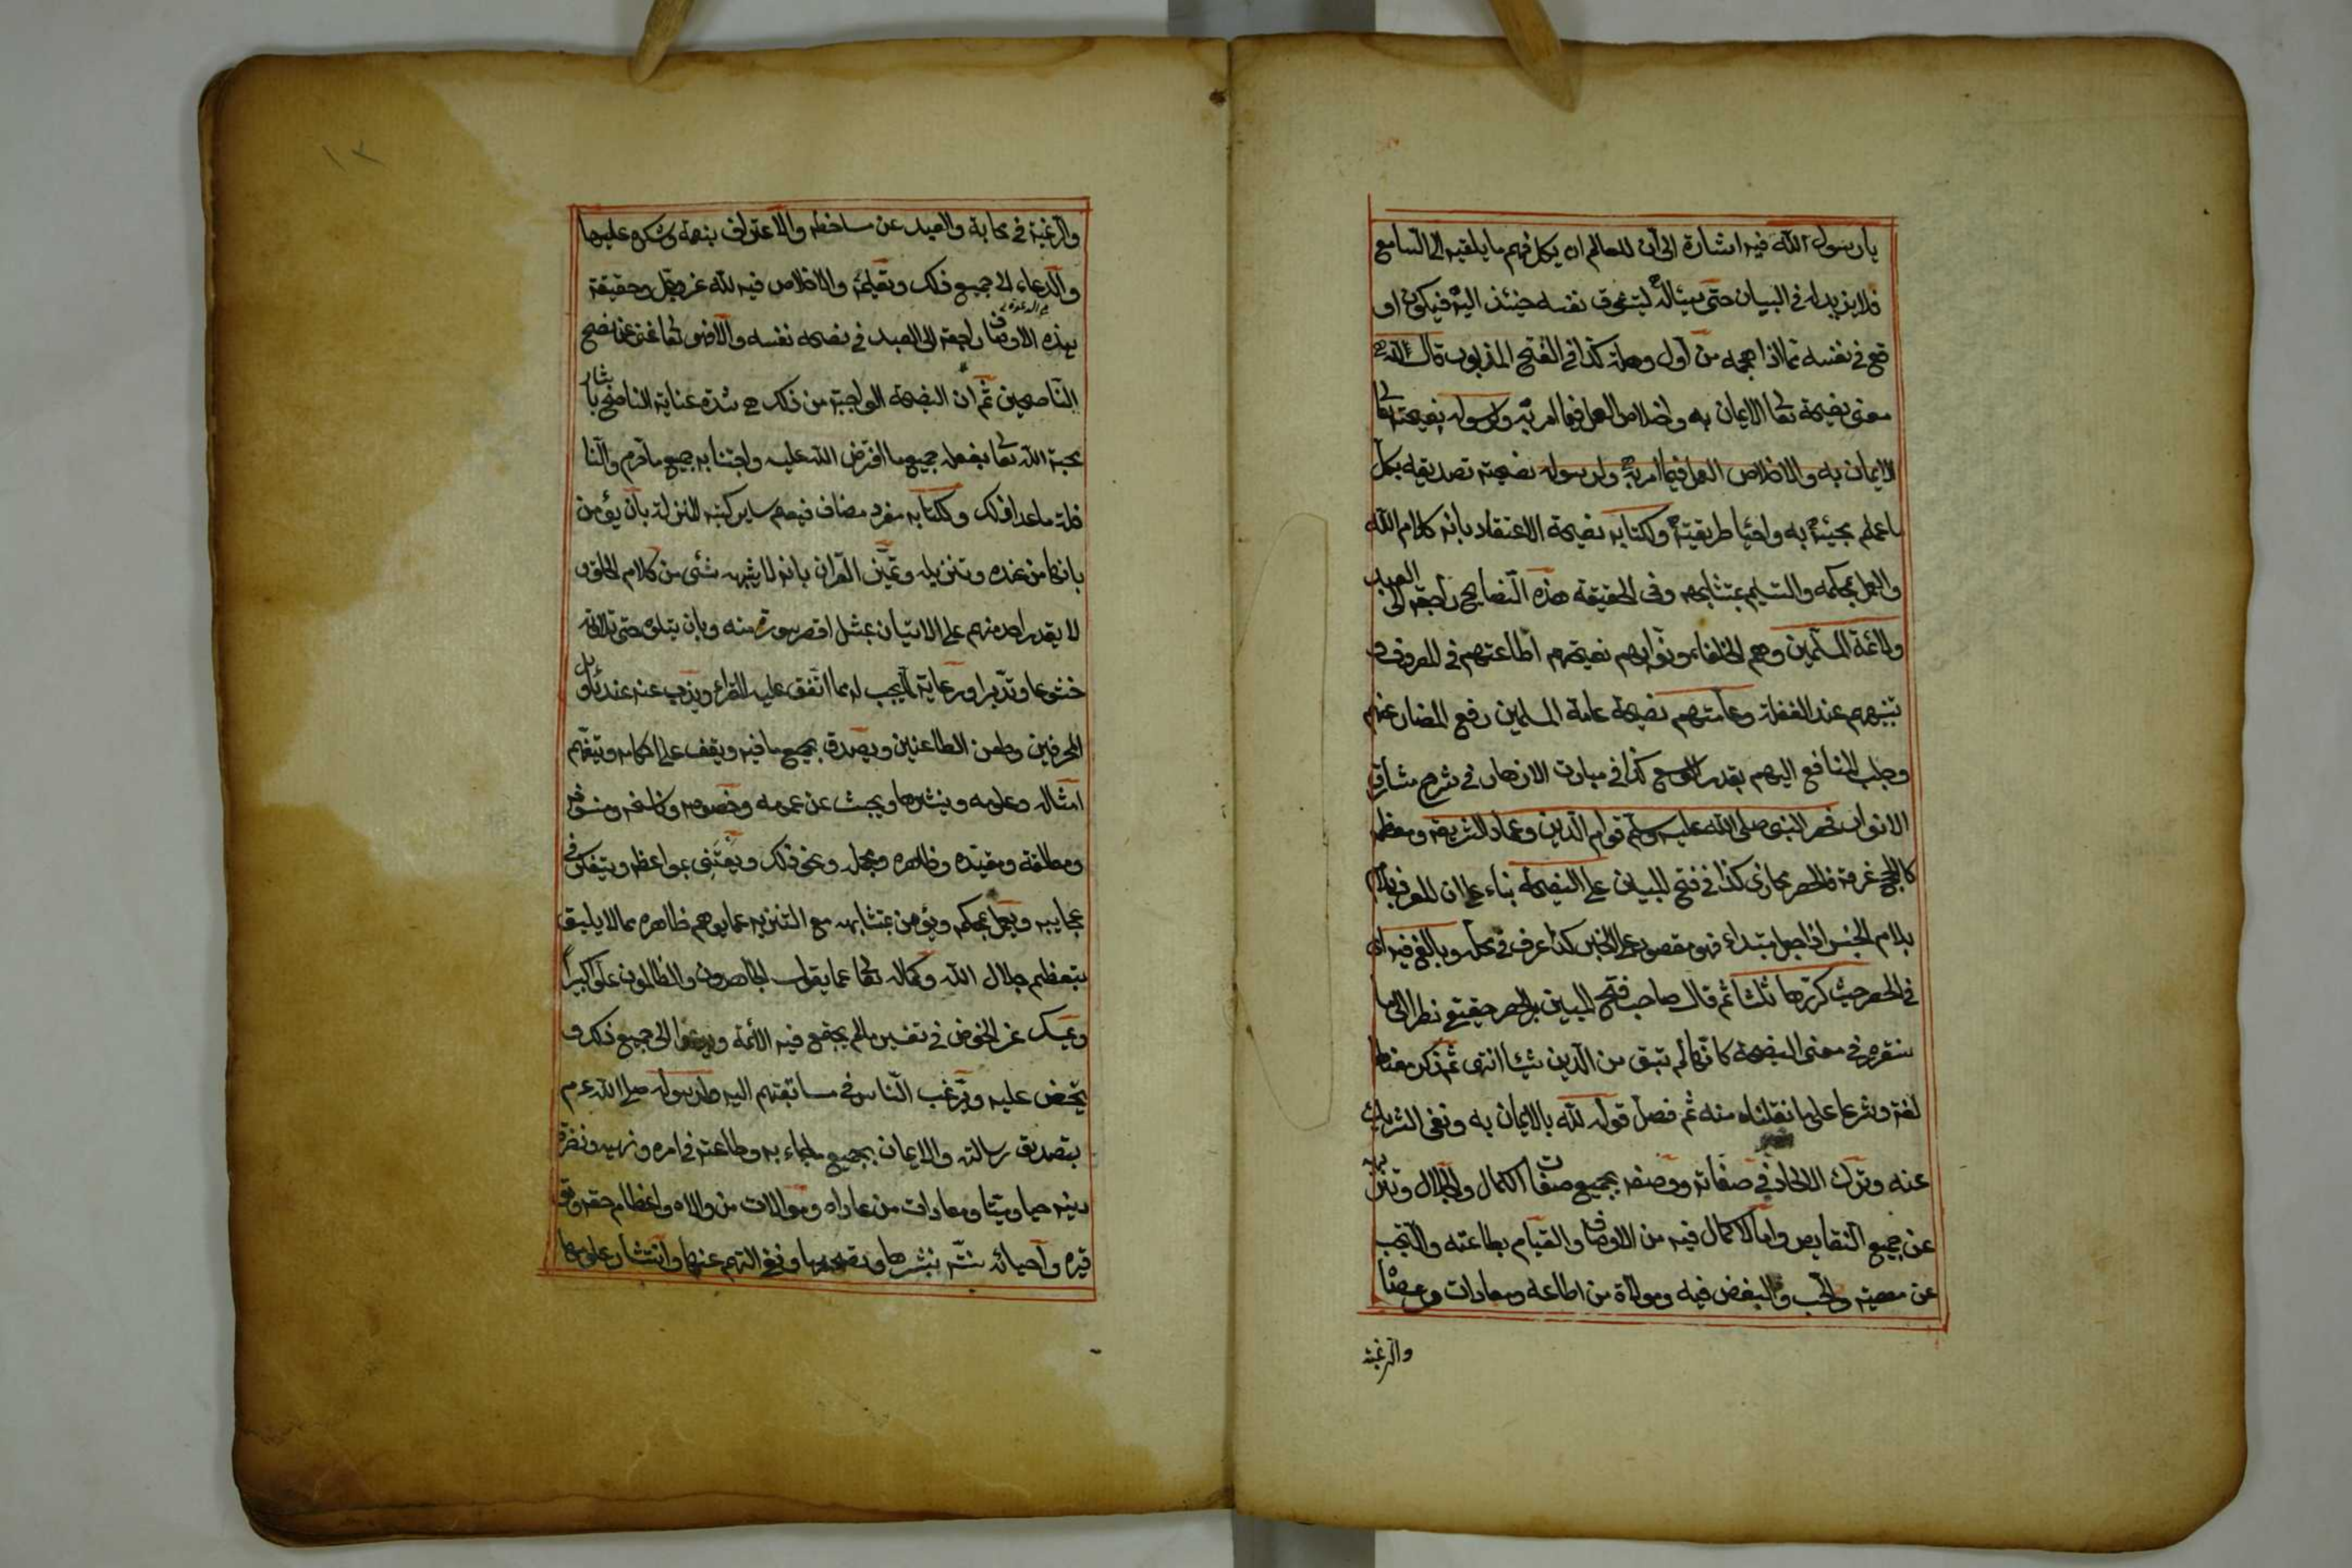 يا رسول الله فيه اشارة الى ان للعالم ان يكل فهم ما يلقيه الى السامع
فلا يزيد له في البيان حتى يسئاله لتشوق نفسه حينئذ اليه فيكون او
قع في نفسه مما اذا هجمه من اول وهلة كذا في الفتح المذبور قال لله
معنى نصيحة تعا الايمان به واخلاص العمل فيما امر به ولرسوله نصيحته تعا
الايمان به والاخلاص العمل فيما امر به ولرسوله نصيحته تصديقه بكل
ما علم مجيئه به واحيا طريقته ولكتابه نصيحة الاعتقاد بانه كلام الله
والعمل بمحكمه والتسليم بمتشابهه وفي الحقيقة هذه النصايح راجعة الى العبد
ولائمة المسلمين وهم الخلفاء ونوابهم نصيحتهم اطاعتهم في المعروف و
تنبيههم عند الغفلة وعامتهم نصيحة عامة المسلمين دفع المضار عنهم
وجلب المنافع اليهم بقدر الوسع كذا في مبارق الازهار في شرح مشارق
الانوار فحصر النبي صلى الله عليه وسلم قوام الدين وعماد الشريعة ومعظمه
كالحج عرفة فالحصر مجازى كذا في فتح المبين على النصيحة بناء على ان المعرف بلام
بلام الجنس اذا جعل مبتداء فهو مقصور على الخبر كما عرف في محله وبالغ فيه اى
في الحصر حيث كررها ثلثا ثم قال صاحب فتح المبين بل الحصر حقيقي نظرا الى ما
سنقرره في معنى النصيحة كانها لم تبق من الدين شيئا انتهى ثم ذكر معناها
لغة وشرعا على ما نقلناه منه ثم فصل قوله لله بالايمان به ونفى الشريك
عنه وترك الالحاد في صفاته ووصفه بجميع صفات الكمال والجلال وتنزيهه
عن جميع النقايص وما لا كمال فيه من الاوصاف والقيام بطاعته والتجنب
عن معصيته والحب والبغض فيه وموالاة من اطاعه ومعادات من عصاه
والرغبة
والرغبة في محابه والبعد عن مساخطه والاعتراف بنعمه وشكره عليها
والدعاء الى جميع ذلك وتعليمه والاخلاص فيه لله عز وجل وحقيقة
هذه الاوصاف راجعة الى العبد في نصحه نفسه والا فهو تعا غني عن نصح
الناصحين ثم ان النصيحة الواجبة من ذلك هي شدة عناية الناصح بايثار
محبة الله تعا بفعل جميع ما افترض الله عليه واجتنابه جميع ما حرم والنا
فلة ما عدا ذلك ولكتابه مفرد مضاف فيعم ساير كتبه المنزلة بان يؤمن
بانها من عنده وتنزيله وتميز القران بانه لا يشبهه شئ من كلام الخلق و
لا يقدر احد منهم على الاتيان بمثل اقصر سورة منه وبان يتلوه حق تلاوته
خشوعا وتدبرا ورعاية لما يجب له مما اتفق عليه القراء ويذب عنه عند تاويل
المحرفين وطعن الطاعنين ويصدق بجميع ما فيه ويقف على احكامه وتيفهم
امثاله وعلومه وينشرها ويبحث عن عمومه وخصوصه وناسخه ومنسوخه
ومطلقه ومقيده وظاهره ومجمله ونحو ذلك ويعتني بمواعظه ويتفكر في
عجايبه ويعمل بمحكمه ويؤمن بمتشابهه مع التنزيه عما يوهم ظاهره مما لا يليق
بتعظيم جلال الله وكماله تعا عما يقول الجاحدون والظالمون علوا كبيرا
ويمسك عن الخوض في تفسير ما لم يجتمع فيه الائمة ويدعوا الى جميع ذلك و
يحض عليه ويرغب الناس في مسابقتهم اليه ولرسوله صلى الله عم
بتصديق رسالته والايمان بجميع ما جاء به وطاعته في امره ونهيه ونصرة
دينه حيا وميتا ومعادات من عاداه وموالات من والاه واعظام حقه وتو
قيره واحيائه سنته بنشرها وتصحيحها ونفي التهم عنها وانتشار علومها